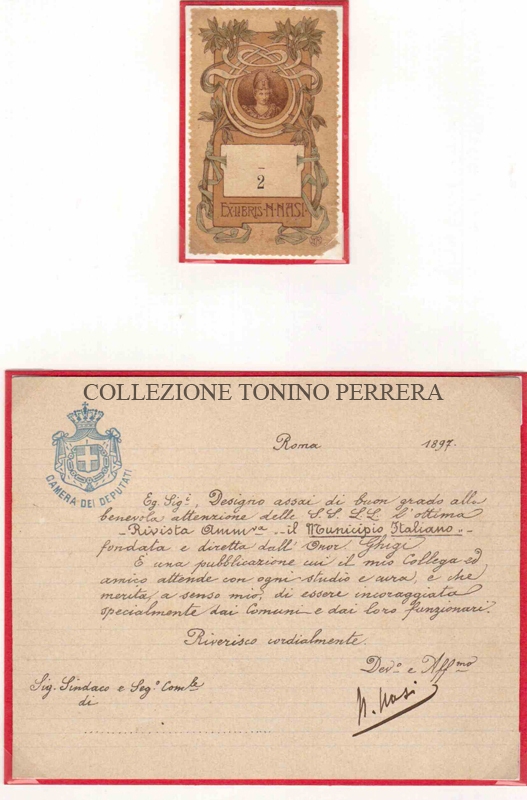 2
EX·LIBRIS·N·NASI·
COLLEZIONE TONINO PERRERA
CAMERA DEI DEPUTATI
Roma 1897.
Eg. Sigi, Designo assai di buon grado alla
benevola attenzione delle S.S. L.L. l'ottima
Rivista Ammva "il Municipio Italiano"
fondata e diretta dall'Onor. Ghigi
È una pubblicazione cui il mio Collega ed
amico attende con ogni studio e cura, e che
merita, a senso mio, di essere incoraggiata
specialmente dai Comuni e dai loro funzionari.
Riverisco cordialmente.
Devo e Affmo
Sig. Sindaco e Sego Comle
N. Nasi
di